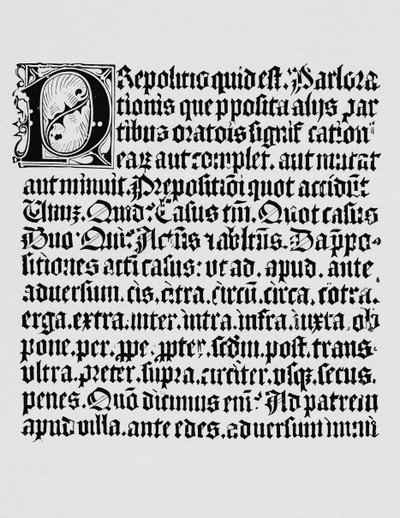 PRepositio quid est. Pars ora
tionis que pposita alijs par
tibus oratōis significationē
earū aut complet. aut mutat
aut minuit. Prepositiōi quot accidūt
Unū. Quid? Casus tm̄. Quot casus
Duo. Qui? Actūs ⁊ ablatūs. Da ppo-
sitiones acti casus: vt ad. apud. ante
aduersum. cis. citra. circū. circa. cōtra.
erga. extra. inter. intra. infra. iuxta. ob
pone. per. ppe. ppter. scdm. post. trans.
vltra. preter. supra. circiter. vsq. secus.
penes. Quō dicimus eni? Ad patrem
apud villā. ante edes. aduersum